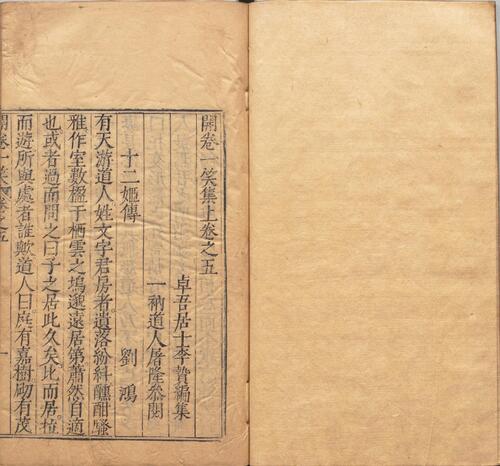 開卷一笑集上卷之五
卓吾居士李贄編集
一衲道人屠隆參閱
十二姬傳
劉鴻
有天游道人姓文字君房者遺落紛糾醺酣騷
雅作室數楹于栖雲之塢邈遠居第蕭然自適
也或者過而問之曰子之居此久矣比而居
而遊所與處者誰歟道人曰庭有嘉樹砌有茂
開卷一笑